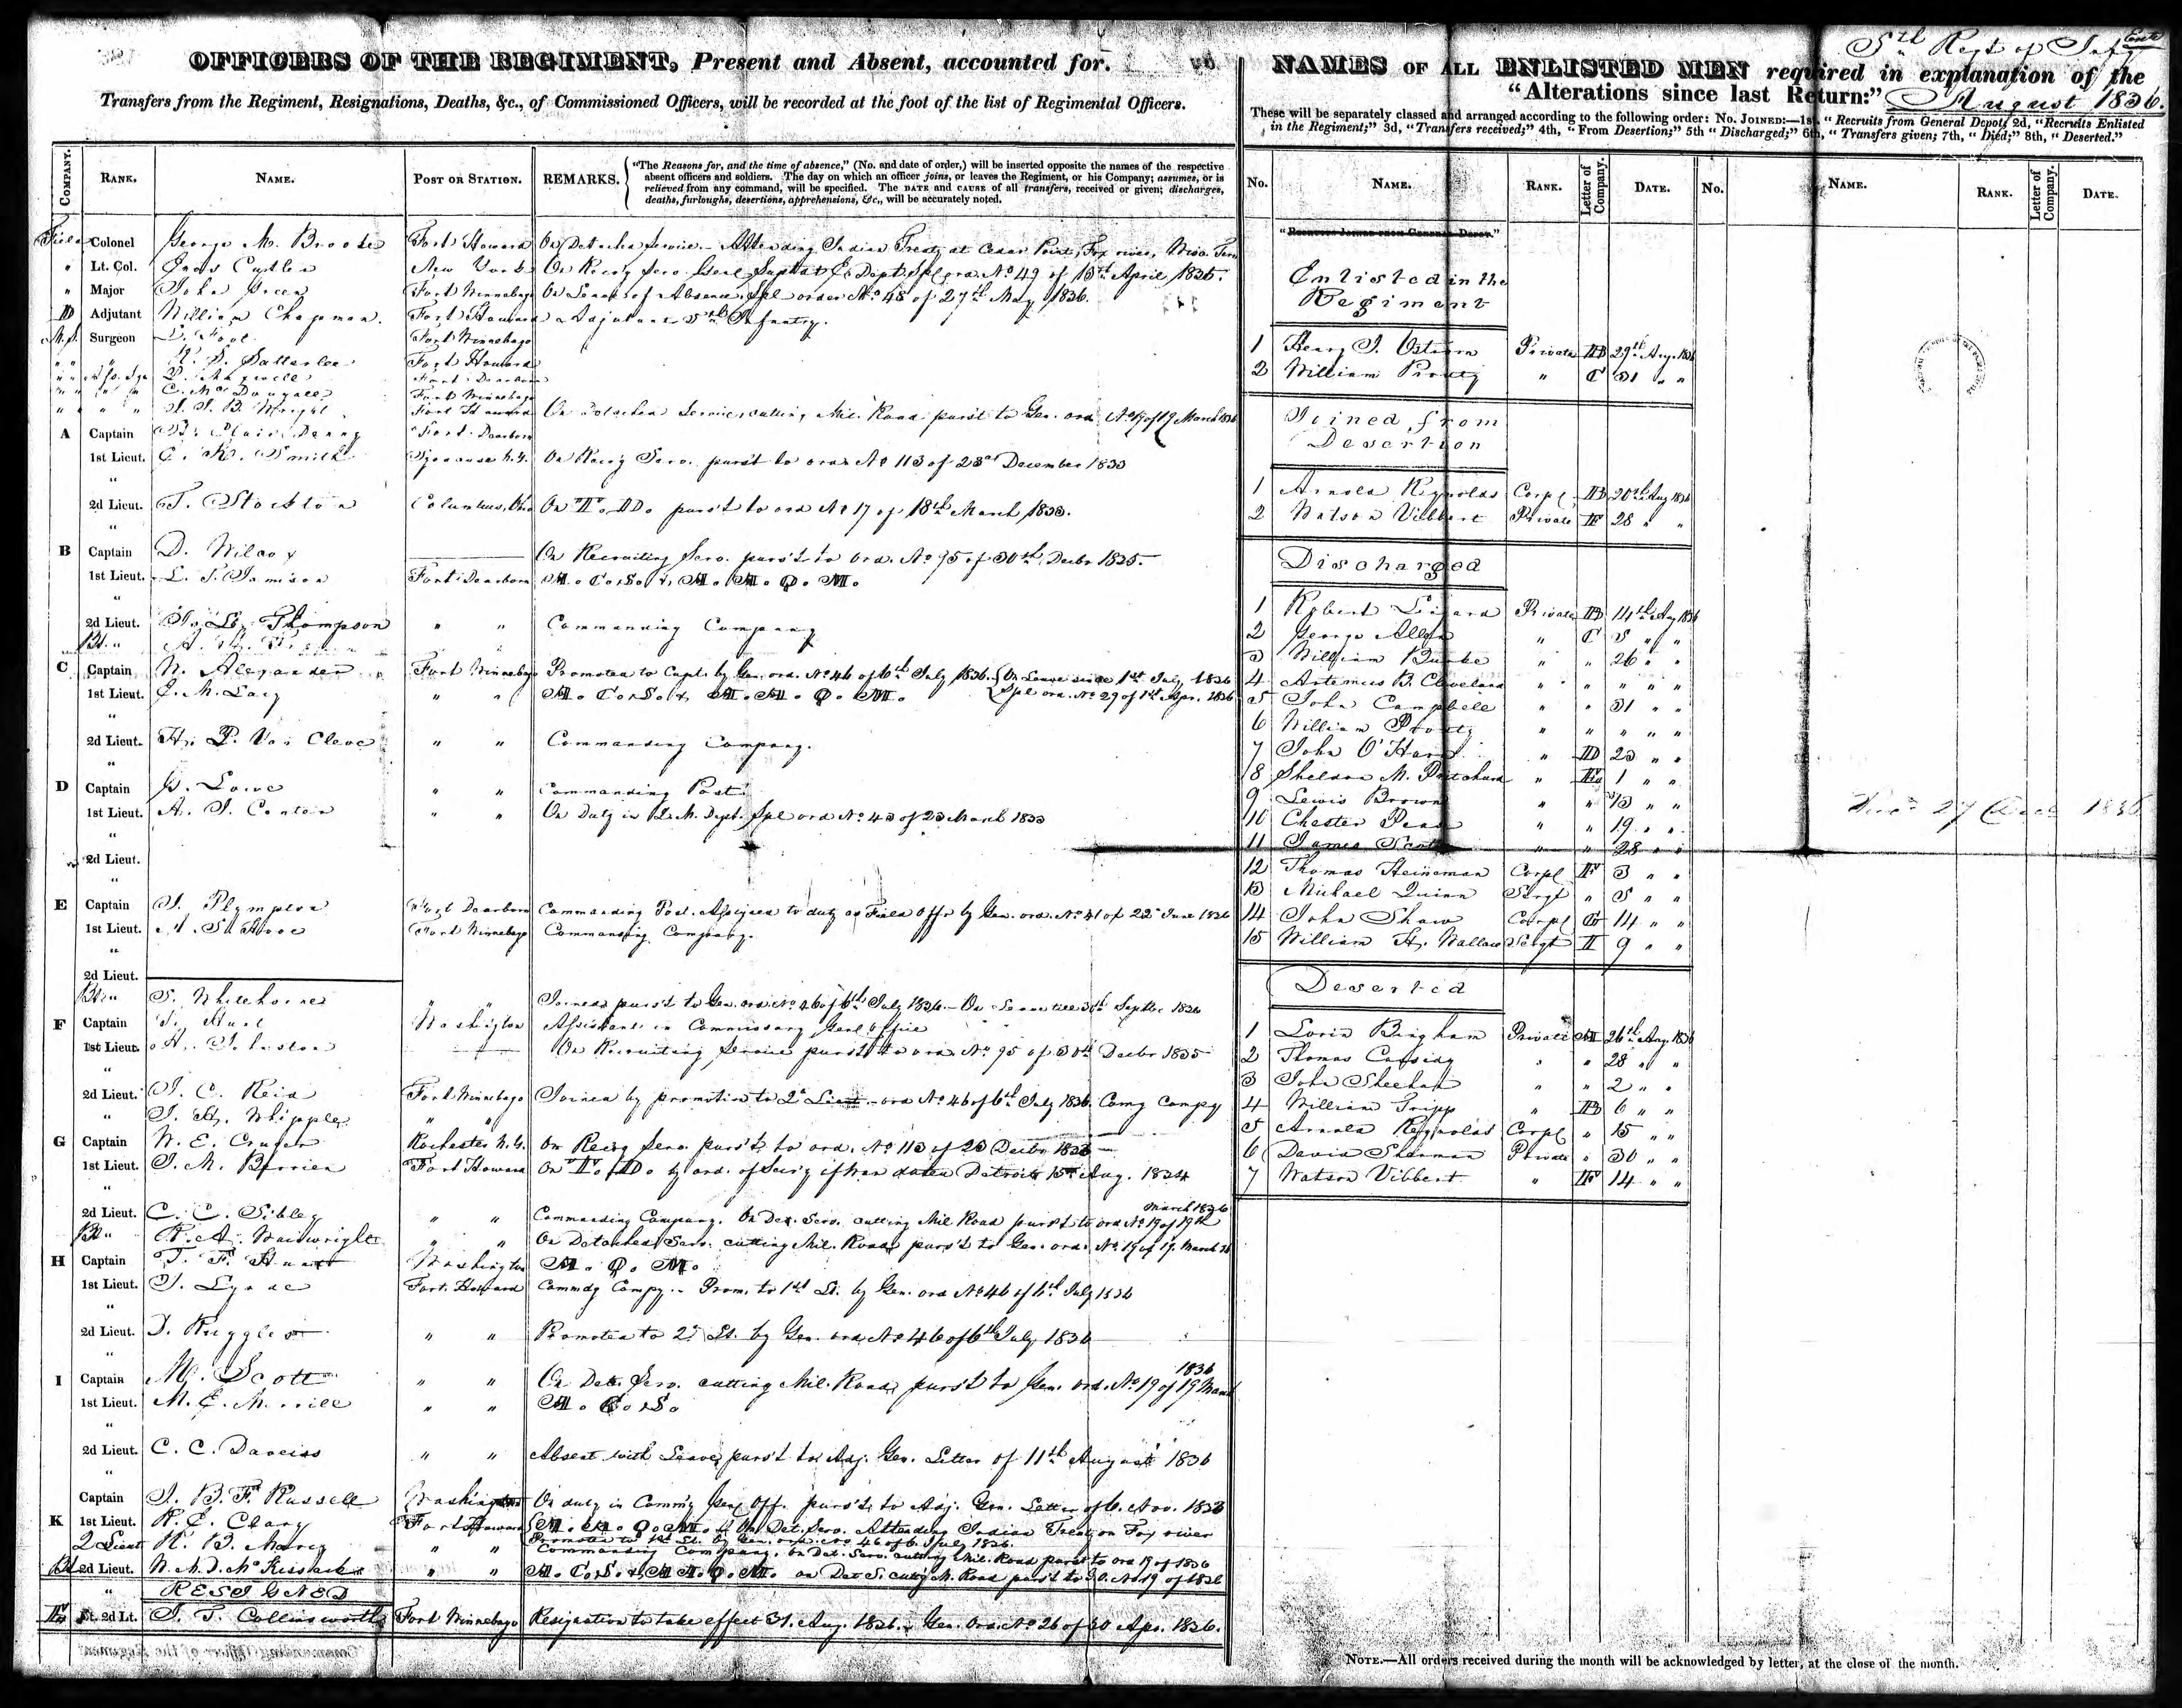 5th Regt of Infy
OFFICERS OF THE REGIMENT, Present and Absent, accounted for.
Transfers from the Regiment, Resignations, Deaths, &c., of Commissioned Officers, will be recorded at the foot of the list of Regimental Officers.
COMPANY. RANK. NAME. POST OR STATION. REMARKS. "The Reasons for, and the time of absence," (No. and date of order,) will be inserted opposite the names of the respective
absent officers and soldiers. The day on which an officer joins, or leaves the Regiment, or his Company; assumes, or is
relieved from any command, will be specified. The DATE and CAUSE of all transfers, received or given; discharges,
deaths, furloughs, desertions, apprehensions, &c., will be accurately noted.
Field Colonel George M. Brooke Fort Howard On Detached Service - Attending Indian Treaty at Cedar Point, Fox river, Wisn. Terr
" Lt. Col. Enos Cutler New York On Recrg Serv. Genl Supt at E. Dept. Spl ord. No 49 of 15th April 1835.
" Major John Green Fort Winnebago On Leave of Absence. Spl order No 48 of 27th May 1836.
D Adjutant William Chapman. Fort Howard Adjutant 5th Infantry.
M.S. Surgeon L. Foot Fort Winnebago
" " " R. S. Satterlee Fort Howard
" " P. Maxwell Fort Dearborn
" " " " C. McDougall Fort Winnebago
" " " " J. J. B. Wright Fort Howard On Detached Service, cutting Mil. Road purs't to Gen. ord No 19 of 19 March 1836
A Captain St. Clair Denny Fort Dearborn
1st Lieut. E. K. Smith Syracuse N.Y. On Recrg Serv. purs't to ord. No 113 of 23d December 1833
"
2d Lieut. T. Stockton Columbus, Ohio On D. Do purs't to ord No 17 of 18th March 1833.
"
B Captain D. Wilcox On Recruiting Serv. purs't to Ord. No 95 of 30th Decbr 1835.
1st Lieut. L. T. Jamison Fort Dearborn A. C. S. & A. A. Q. M.
"
2d Lieut. J. L. Thompson " " Commanding Company
Bt. "
C Captain W. Alexander Fort Winnebago Promoted to Capt. by Gen. ord. No 46 of 6th July 1836. On Leave since 1st July 1836
Spl ord. No 29 of 1st Apr. 1836
1st Lieut. " " A. C. S. & A. A. Q. M.
"
2d Lieut. H. P. Van Cleve " " Commanding Company.
"
D Captain G. Lowe " " Commanding Post.
1st Lieut. A. S. Center " " On Duty in Q. M. Dept. Spl ord No 43 of 23 March 1833
"
2d Lieut.
"
E Captain J. Plympton Fort Dearborn Commanding Post. Assigned to duty as Field Offr by Gen. ord. No 41 of 22d June 1836
1st Lieut. Fort Winnebago Commanding Company.
"
2d Lieut.
Bt. " S. Whitehorne " " Joined purs't to Gen. ord No 46 of 6th July 1836 - On Leave till 30th Septbr 1836
F Captain Washington Assistant in Commissary Genl Office
1st Lieut. A. Johnston On Recruiting Service purs't to ord No 95 of 30th Decbr 1835
"
2d Lieut. J. C. Reid Fort Winnebago Joined by promotion to 2d Lieut - ord No 46 of 6th July 1836. Comg Compy
" J. H. Whipple " "
G Captain W. E. Cruger Rochester N.Y. On Recrg Serv. purs't to ord. No 113 of 23 Decbr 1833
1st Lieut. J. M. Berrien Fort Howard On D. Do by ord. of Sec'y of War dated Detroit 15th Aug. 1834
"
2d Lieut. C. C. Sibley " " Commanding Company. On Det. Serv. cutting Mil Road purs't to ord No 19 of 19th March 1836
Bt " R. A. Wainwright " " On Detached Serv. cutting Mil. Road purs't to Gen. ord. No. 19 of 19. March 36
H Captain T. F. Hunt Washington A. Q. M.
1st Lieut. I. Lynde Fort Howard Commdg Compy. - Prom. to 1st Lt. by Gen. ord No 46 of 6th July 1836
"
2d Lieut. D. Ruggles " " Promoted to 2d Lt. by Gen. ord No 46 of 6th July 1836
"
I Captain M. Scott " " On Det. Serv. cutting Mil. Road, purs't to Gen. ord. No 19 of 19 March 1836
1st Lieut. M. E. Merrill " " A. C. S.
"
2d Lieut. C. C. Daveiss " " Absent with Leave, purs't to Adj. Gen. Letter of 11th August 1836
"
Captain J. B. F. Russell Washington On duty in Comm'g Genl Off. purs't to Adj. Gen. Letter of 6. Nov. 1833
K 1st Lieut. R. E. Clary Fort Howard A. A. Q. M. & On Det. Serv. Attending Indian Treaty on Fox river
Promoted to 1st Lt. by Gen. ord. No 46 of 6. July 1836.
2 Lieut R. B. Marcy " " Commanding Company. On Det. Serv. cutting Mil. Road purs't to ord 19 of 1836
Bt 2d Lieut. W. M. D. McKissack " " A. C. S. & A. A. Q. M. on Det S. cuttg M. Road purs't to G.O. No 19 of 1836
" RESIGNED
Bt. 2d Lt. J. T. Collinsworth Fort Winnebago Resignation to take effect 31. Aug. 1836. Gen. Ord. No 26 of 30 Apr. 1836.
NAMES OF ALL ENLISTED MEN required in explanation of the
"Alterations since last Return:" August 1836.
These will be separately classed and arranged according to the following order: No. JOINED:—1st. "Recruits from General Depot; 2d, "Recruits Enlisted
in the Regiment;" 3d, "Transfers received;" 4th, "From Desertion;" 5th "Discharged;" 6th, "Transfers given; 7th, "Died;" 8th, "Deserted."
No. NAME. RANK. Letter of Company. DATE. No. NAME. RANK. Letter of Company. DATE.
"RECRUITS JOINED FROM GENERAL DEPOT."
Enlisted in the
Regiment
1 Henry J. Private B 29th Aug. 1836
2 William Prouty " C 31 " "
Joined from
Desertion
1 Arnold Reynolds Corpl B 20th Aug 1836
2 Watson Vibbert Private F 28 " "
Discharged
1 Robert Private B 14th Aug 1836
2 George Allen " C 5 " "
3 William Burke " " 26 " "
4 Artemus B. Cleveland " " " " "
5 John Campbell " " 31 " "
6 William Prouty " " " " "
7 John O'Hara " D 23 " "
8 Sheldon M. Pritchard " 1 " "
9 Lewis Brown " " 13 " "
10 Chester " " 19 " "
11 James Scott " " 28 " "
12 Thomas Heineman Corpl F 3 " "
13 Michael Quinn Sergt " 5 " "
14 John Shaw Corpl G 14 " "
15 William H. Wallace Sergt I 9 " "
Deserted
1 Loria Bingham Private A 26th Aug. 1836
2 Thomas Cassidy " " 28 " "
3 John Sheehan " " 2 " "
4 William Tripp " B 6 " "
5 Arnold Reynolds Corpl " 15 " "
6 David Sherman Private " 30 " "
7 Watson Vibbert " F 14 " "
27 1836
NOTE.—All orders received during the month will be acknowledged by letter, at the close of the month.